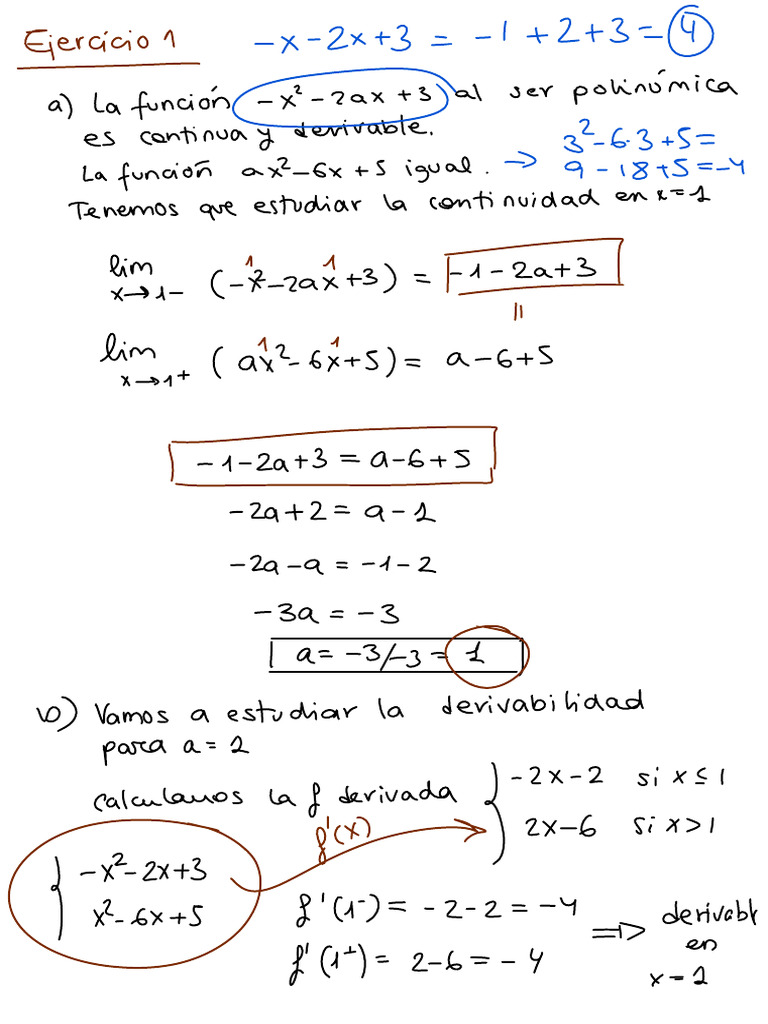 Ejercicio 1
-x-2x+3 = -1+2+3=4
a) La función -x²-2ax+3 al ser polinómica
es continua y derivable.
La función ax²-6x+5 igual. → 3²-6·3+5=
9-18+5=-4
Tenemos que estudiar la continuidad en x=1
lim x→1- (-x²-2ax+3) = -1-2a+3
1 1
=
lim x→1+ (ax²-6x+5) = a-6+5
1 1
-1-2a+3 = a-6+5
-2a+2 = a-1
-2a-a = -1-2
-3a = -3
a = -3/-3 = 1
b) Vamos a estudiar la derivabilidad
para a=1
calculamos la f derivada { -2x-2 si x≤1
2x-6 si x>1
f'(x)
{ -x²-2x+3
x²-6x+5
f'(1-) = -2-2 = -4
f'(1+) = 2-6 = -4
⇒ derivabl
en
x=1